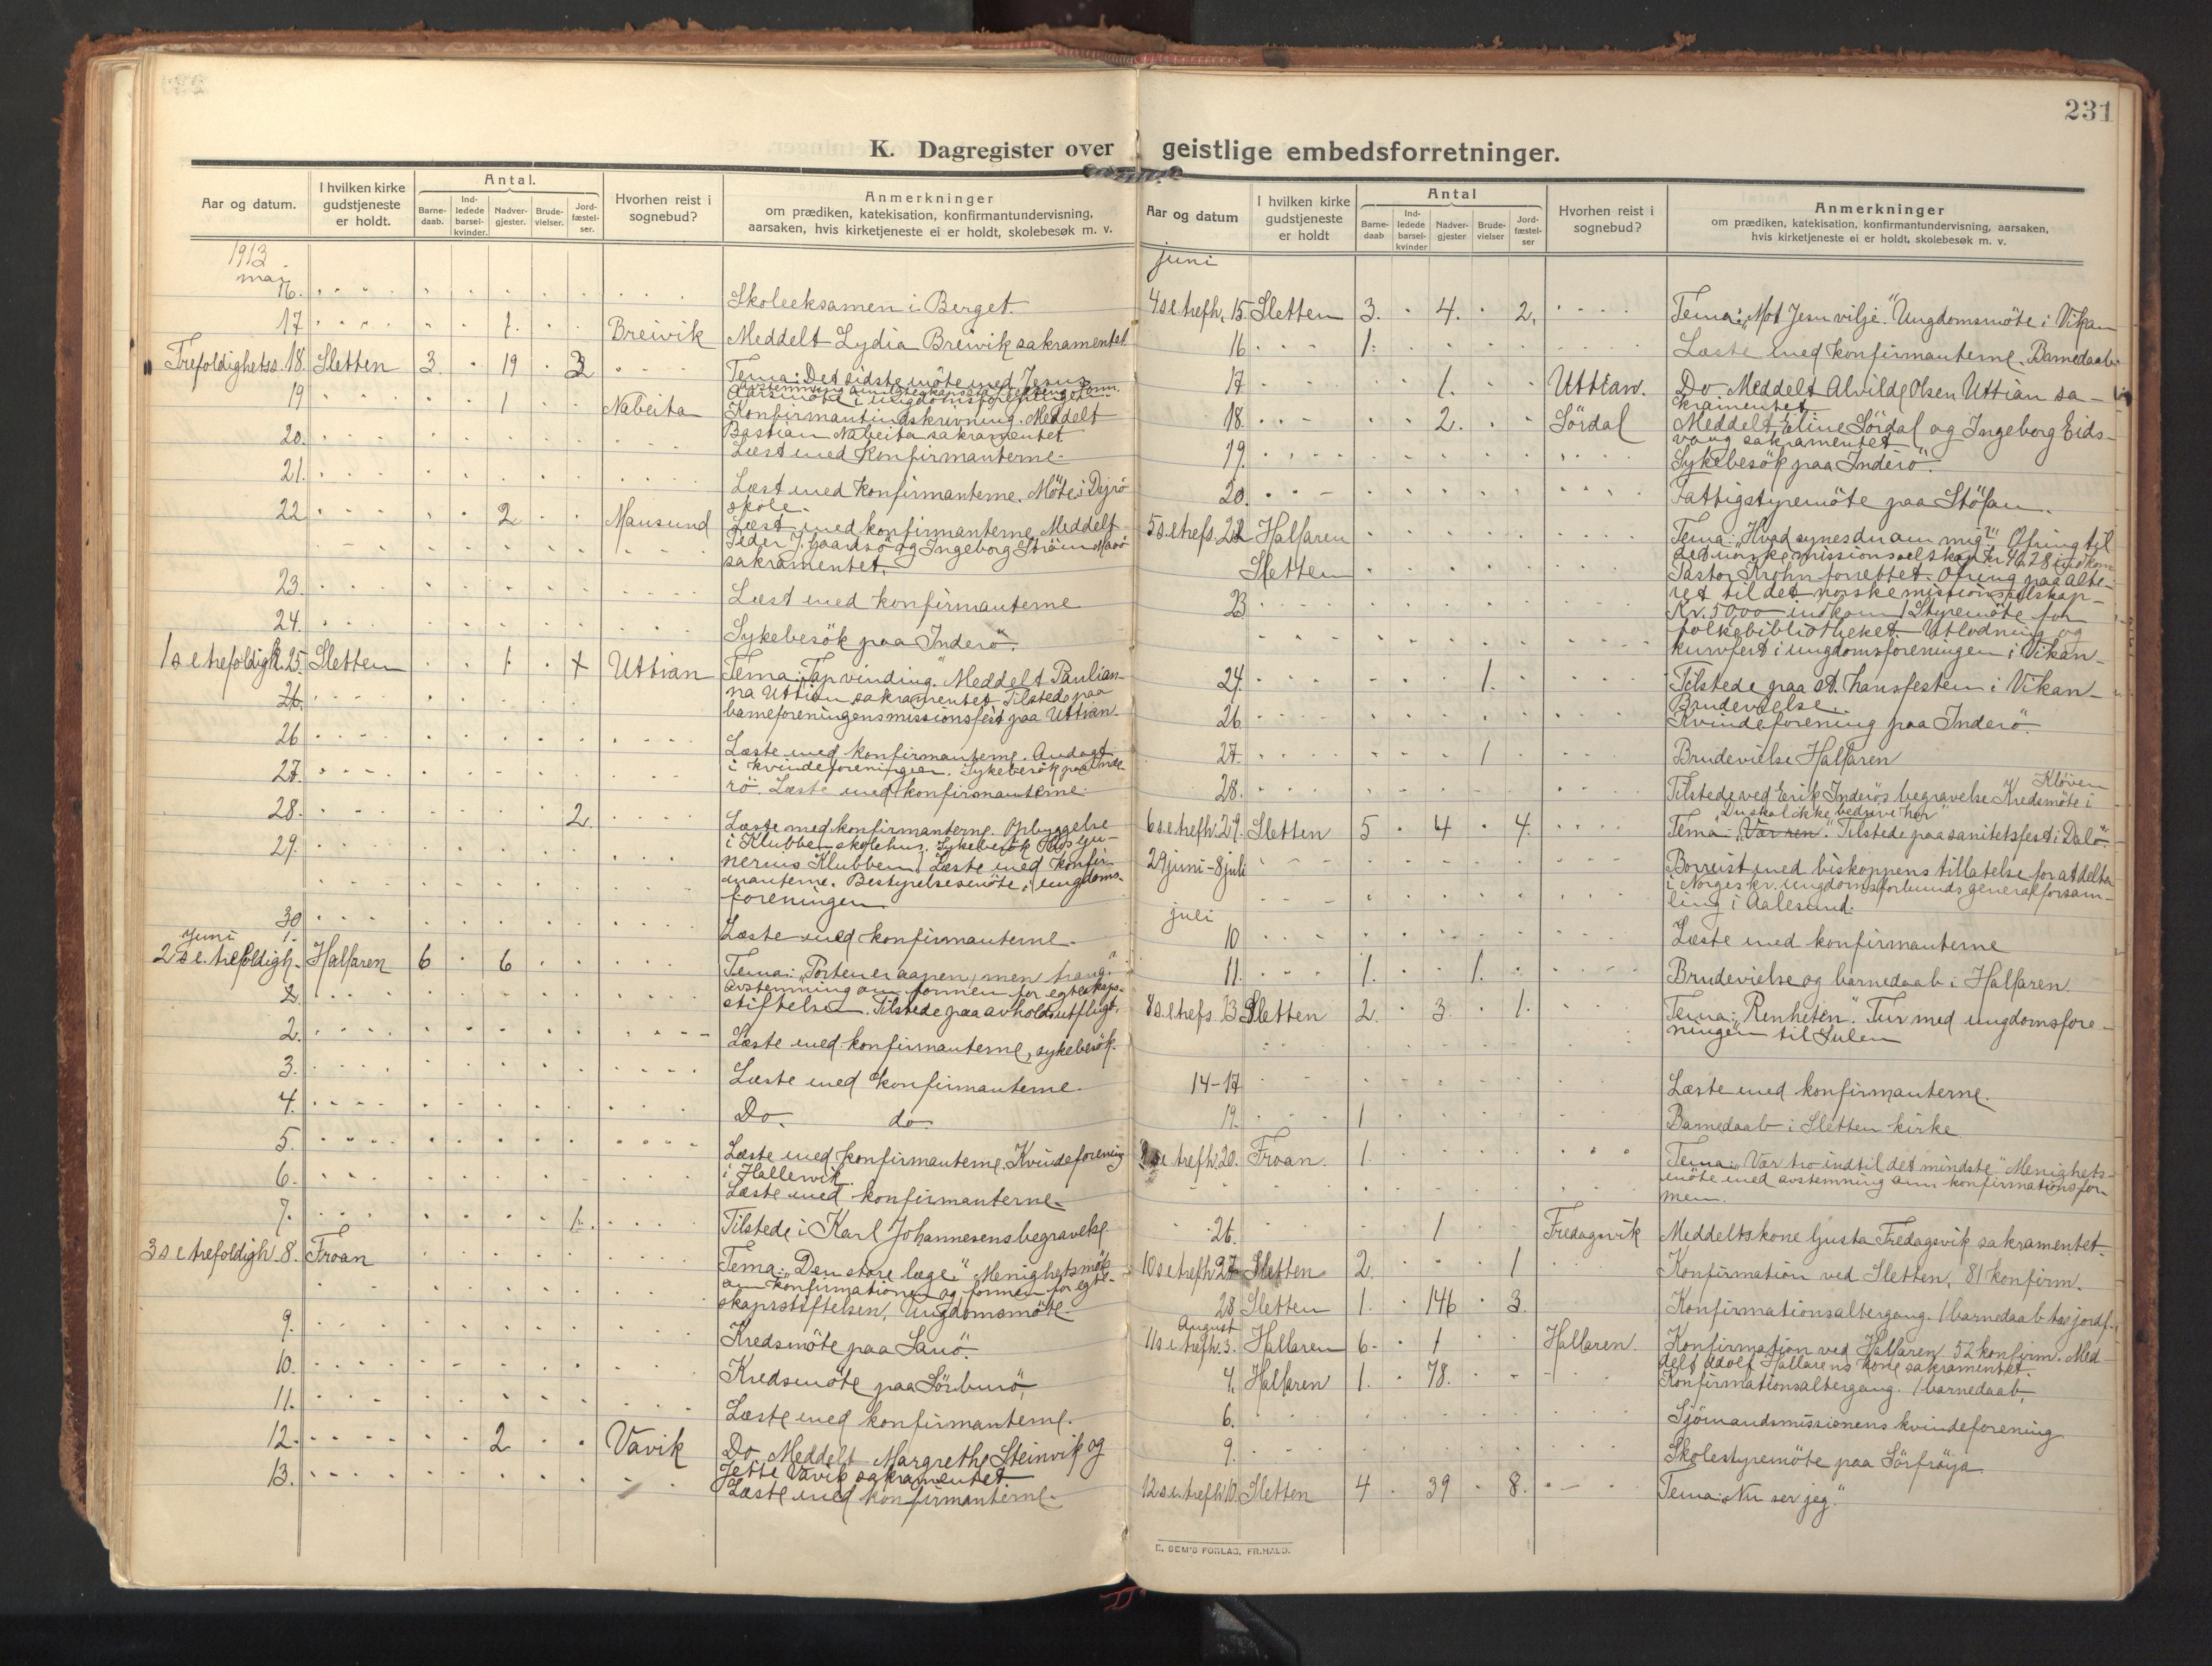 231
K. Dagregister over geistlige embedsforretninger.
Aar og datum.
I hvilken kirke gudstjeneste er holdt.
Antal.
Barne-daab.
Ind-ledede barsel-kvinder.
Nadver-gjester.
Brude-vielser.
Jord-fæstel-ser.
Hvorhen reist i sognebud?
Anmerkninger
om prædiken, katekisation, konfirmantundervisning,
aarsaken, hvis kirketjeneste ei er holdt, skolebesøk m. v.
1913
mai
16. Skoleeksamen i Berget.
17 1. Breivik Meddelt Lydia Breivik sakramentet
Trefoldighetss. 18. Sletten 3. 19 3 Tema: Det sidste møte med Jesus
Aarsmøte i ungdomsforeningen
19 1 Nabeita Konfirmantindskrivning. Meddelt
Bastian Nabeita sakramentet
20. Læst med konfirmanterne.
21. Læst med konfirmanterne. Møte i Dyrø
skole.
22 2 Mausund Læst med konfirmanterne. Meddelt
Peder J. Gaardsø og Ingeborg Strøm Maaø
sakramentet.
23. Læst med konfirmanterne
24. Sykebesök paa Inderö.
1 s e trefoldigh. 25. Sletten 1. + Uttian Tema: Tap vinding." Meddelt Paulian-
na Uttian sakramentet. Tilstede paa
barneforeningens missionsfest paa Uttian.
26.
26 Læste med konfirmanterne. Andagt
i kvindeforeningen. Sykebesök paa Inde-
27. rö. Læste med konfirmanterne.
28. 2. Læste med konfirmanterne. Opbyggelse
i Klubben skolehus. Sykebesök
29. Klubben. Læste med konfir-
manterne. Bestyrelsesmöte i ungdoms-
foreningen
30 Læste med konfirmanterne.
Juni 1.
2 s e. trefoldigh. Halfaren 6 6 Tema: "Porten er aapen, men trang."
Avstemning om formen for egteskaps-
2 stiftelsen. Tilstede paa avholdsutflugt.
2. Læste med konfirmanterne, sykebesök.
3. Læste med konfirmanterne.
4. Do. do.
5. Læste med konfirmanterne. Kvindeforening
i Hallervik.
6. Læste med konfirmanterne.
7. 1. Tilstede i Karl Johannesens begravelse.
3 s e trefoldigh. 8. Froan Tema: "Den store læge." Menighetsmöte
om konfirmationen og formen for egte-
skapsstiftelsen, Ungdomsmöte.
9. Kredsmöte paa Sauö.
10. Kredsmöte paa Sörburö,
11. Læste med konfirmanterne.
12. 2 Vavik Do. Meddelt Margrethe Steinvik og
Jette Vavik sakramentet
13. Læste med konfirmanterne.
Aar og datum
I hvilken kirke gudstjeneste er holdt
Antal
Barne-daab
Ind-ledede barsel-kvinder
Nadver-gjester
Brude-vielser
Jord-fæstel-ser
Hvorhen reist i sognebud?
Anmerkninger
om prædiken, katekisation, konfirmantundervisning, aarsaken,
hvis kirketjeneste ei er holdt, skolebesøk m. v.
juni
4 s e. trefh. 15. Sletten 3. 4. 2. Tema: "Mot Jesu vilje." Ungdomsmöte i Vikan
16 1. Læste med konfirmanterne. Barnedaab.
17 1. Uttian. Do Meddelt Alvilde Olsen Uttian sa-
kramentet
18. 2. Sördal Meddelt Eline Sördal og Ingeborg Eids-
vaag sakramentet
19. Sykebesök paa Inderö.
20. Fattigstyremöte paa Stölan.
5 s. e. trefs. 22 Halfaren Tema: Hvad synes du om mig?" Ofring til
det norske missionsselskap kr 46,28 indkom
Sletten Pastor Krohn forrettet. Ofring paa alte-
ret til det norske missionsselskap
23 Kr. 50,00 indkom. Styremöte for
folkebibliotheket. Utlodning og
kurvfest i ungdomsforeningen i Vikan
24. 1. Tilstede paa St. hansfesten i Vikan
Brudevielse.
26 Kvindeforening paa Inderö.
27. 1 Brudevielse Halfaren
28. Tilstede ved Erik Inderös begravelse Kredsmöte i Klöven
"Du skal ikke bedrive hor"
6 s e. trefh. 29. Sletten 5 4 4. Tema: "Vær ren". Tilstede paa sanitetsfest i Dalö
29 juni - 8 juli Bortreist med biskoppens tillatelse for at delta
i Norges kr. ungdomsforbunds generalforsam-
ling i Aalesund.
juli
10 Læste med konfirmanterne
11. 1. 1. Brudevielse og barnedaab i Halfaren.
8 s. e. trefs. 13 Sletten 2. 3. 1. Tema: "Renheten". Tur med ungdomsfore-
ningen til Sulen
14-17 Læste med konfirmanterne.
19. 1 Barnedaab i Sletten kirke
9 s e trefh. 20. Froan. 1. Tema: "Vær tro indtil det mindste." Menighets-
möte med avstemning om konfirmationsfor-
men.
26. 1 Fredagsvik Meddelt kone Gusta Fredagsvik sakramentet.
10 s e trefh 27 Sletten 2. 1 Konfirmation ved Sletten, 81 konfirm.
28 Sletten 1. 146 3. Konfirmationsaltergang. 1 barnedaab jordf.
August
11 s e. trefh. 3. Hallaren 6. 1 Hallaren. Konfirmation ved Halfaren 52 konfirm. Med-
delt Adolf Hallarens kone sakramentet.
4. Halfaren 1. 78. Konfirmationsaltergang. 1 barnedaab,
6. Sjömandsmissionens kvindeforening
9. Skolestyremöte paa Sörfröya.
12 s. e. trefh 10. Sletten 4 39 8. Tema: Nu ser jeg."
E. SEM'S FORLAG, FR.HALD.